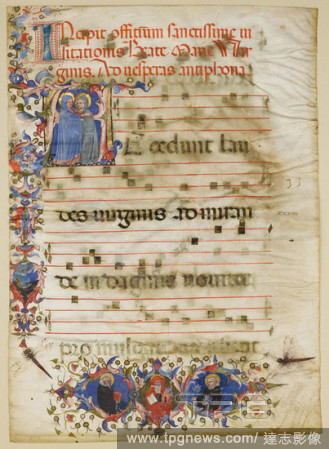 Incipit officium sanctissime vi
sitationis Beate Marie Vir
ginis. Ad vesperas antiphona
Accedunt lau
33
des virginis admiran
de indaginis noviter
www.tpgnews.com/ 達志影像